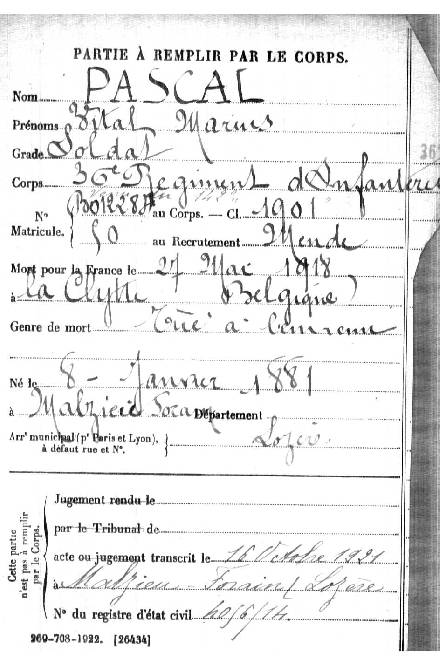 PARTIE À REMPLIR PAR LE CORPS.
Nom PASCAL
Prénoms Vital Marius
Grade Soldat
36
Corps 36e Régiment d'Infanterie
N° 012287 au Corps. — Cl. 1901
Matricule. 50 au Recrutement Mende
Mort pour la France le 27 Mai 1918
à la Clytte (Belgique)
Genre de mort Tué à l'ennemi
Né le 8 - Janvier 1881
à Malzieu Forain Département
Arr' municipal (p' Paris et Lyon), à défaut rue et N°. Lozère
Cette partie n'est pas à remplir par le Corps.
Jugement rendu le
par le Tribunal de
acte ou jugement transcrit le 16 Octobre 1921
à Malzieu Forain (Lozère
N° du registre d'état civil 40/6/14
269-708-1922. [26434]